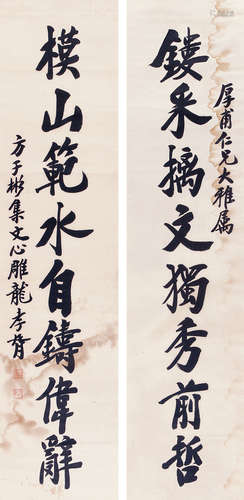 厚甫仁兄大雅属
鏤采摛文獨秀前哲
模山範水自鑄偉辭
方于彬集文心雕龍孝胥